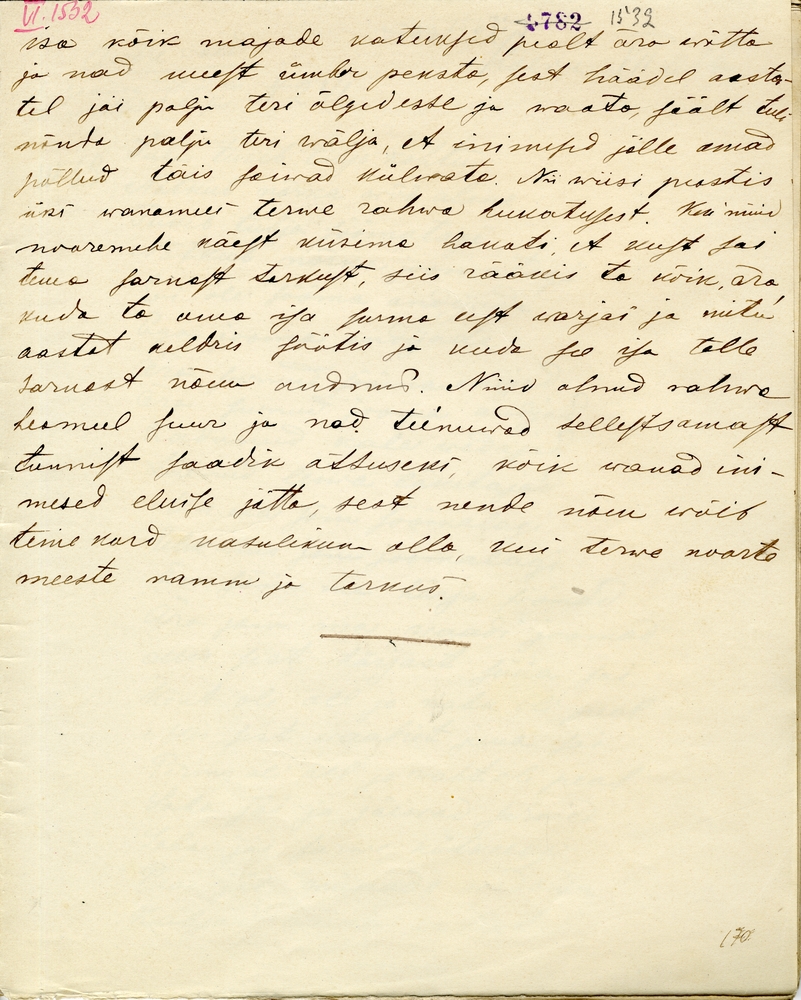 VI. 1532
4782 1532
isa kõik majade katuksed pealt ära wõtta
ja nad uuest ümber peksta, sest häädel aasta-
tel jäi palju teri õlgedesse ja waata, säält tuli
nõnda palju teri wälja, et inimesed jälle omad
põllud täis saiwad külwata. Nii wiisi peastis
üks wanamees terwe rahwa hukatusest. Kui nüüd
nooremehe käest küsima hakati, et kust sai
tema sarnast tarkust, siis rääkis ta kõik ära,
kuda ta oma isa surma eest warjas ja mitu
aastat keldris söötis ja kuda see isa talle
sarnast nõuu andnud. Nüüd olnud rahwa
heameel suur ja nad teinuwad sellestsamast
tunnist saadik otsuseks, kõik wanad ini-
mesed eluise jätta, sest nende nõuu wõib
teine kord kasulikum olla, kui terwe noorte
meeste ramm ja tarkus.
170